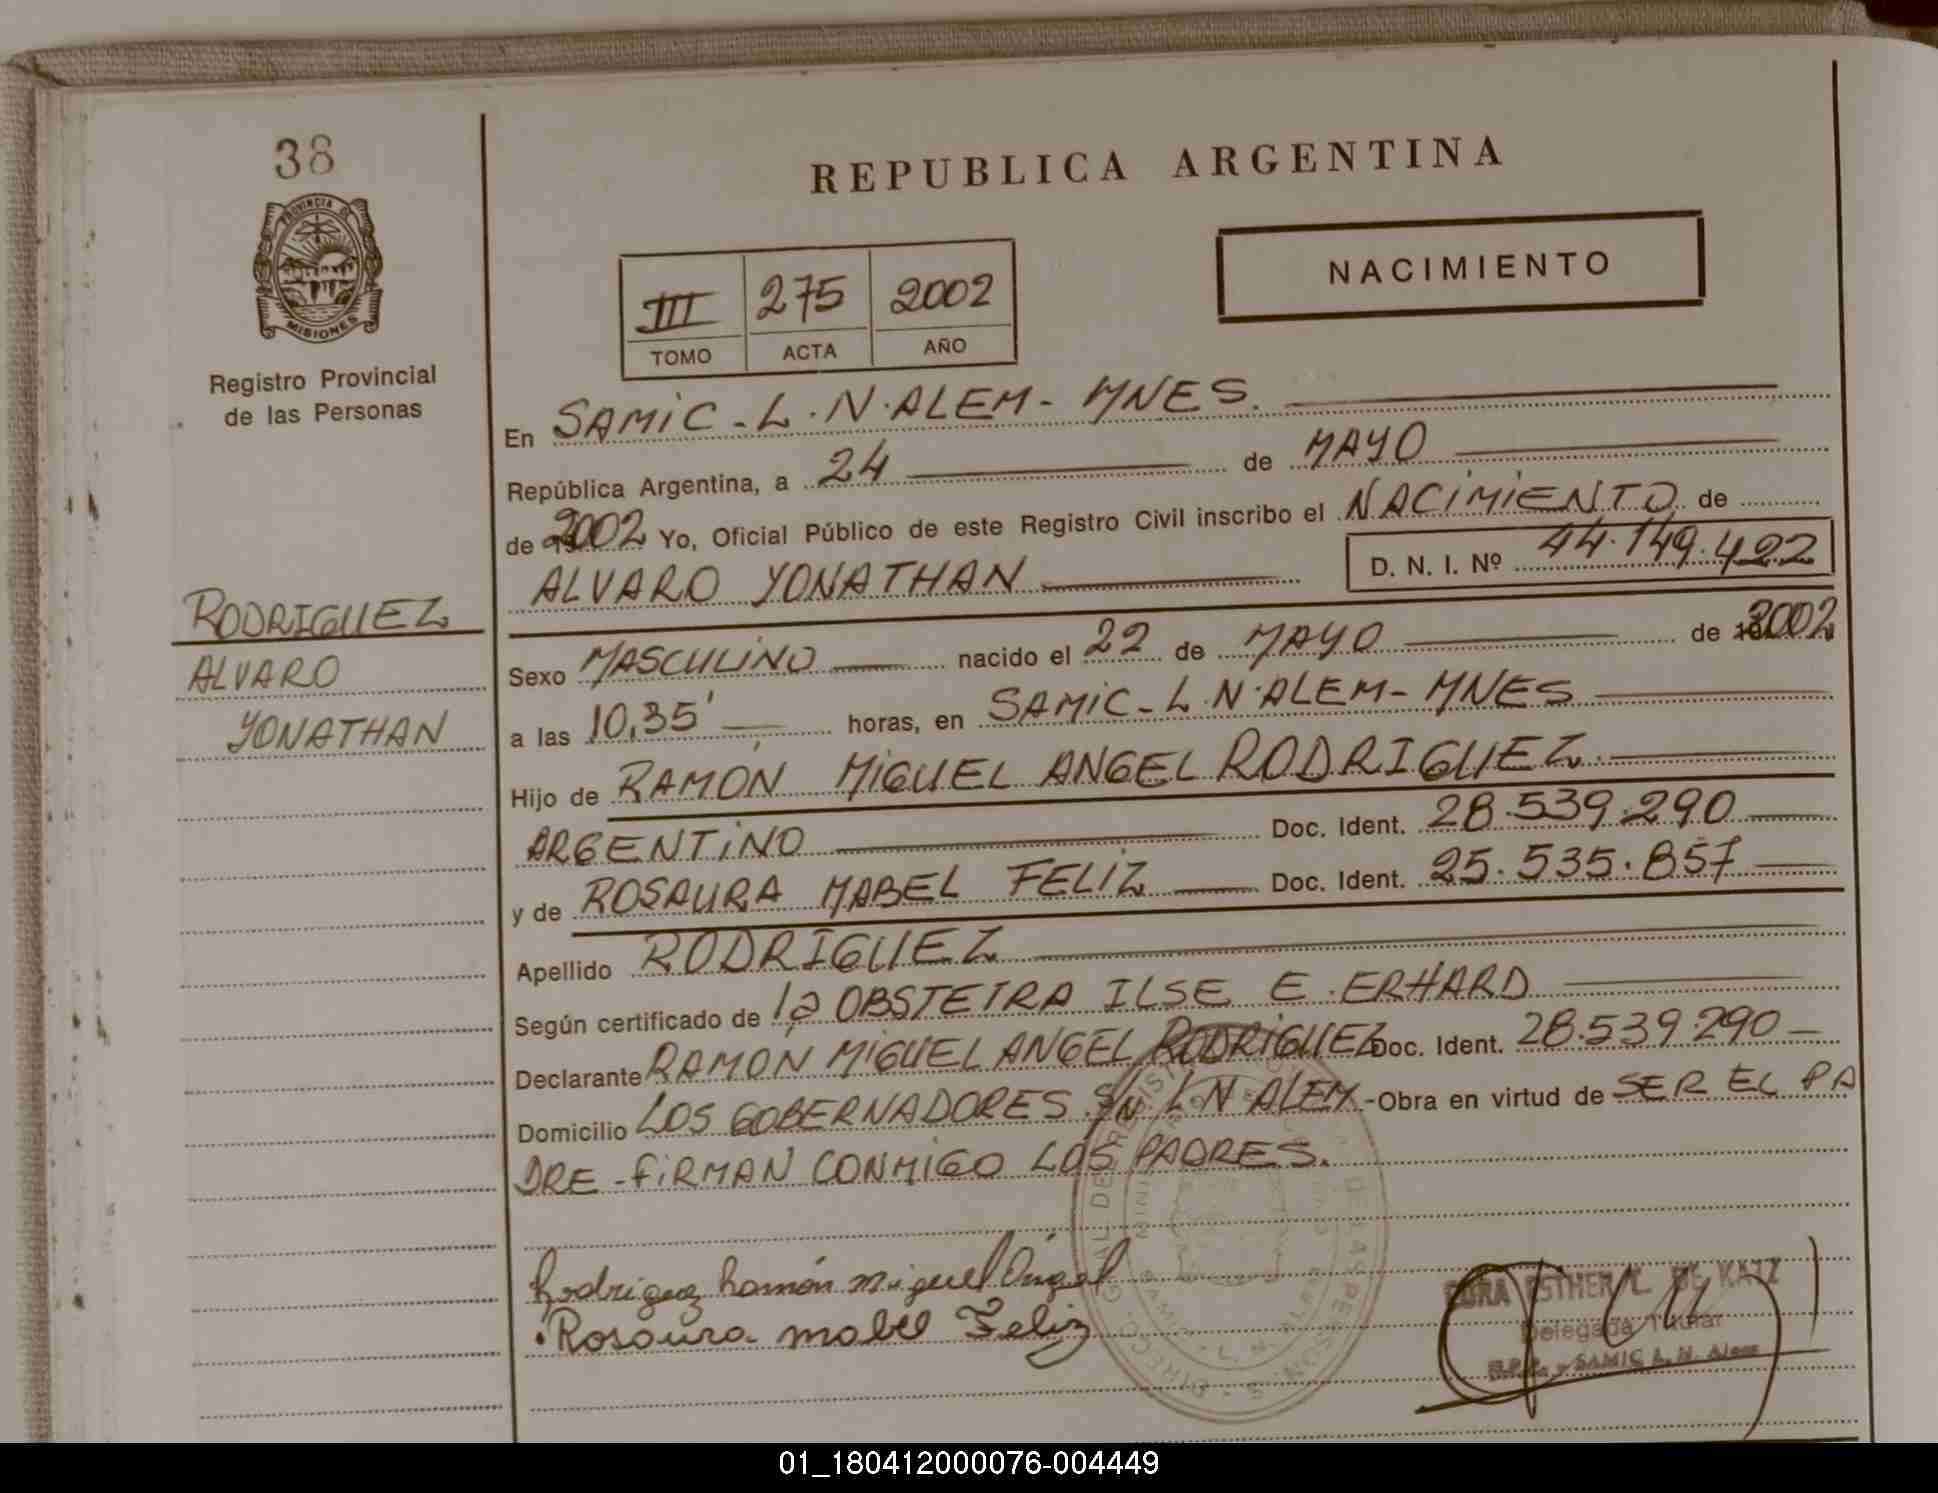 38
PROVINCIA DE
MISIONES
Registro Provincial
de las Personas
RODRIGUEZ
ALVARO
YONATHAN
REPUBLICA ARGENTINA
NACIMIENTO
III 275 2002
TOMO ACTA AÑO
En SAMIC - L. N. ALEM - MNES.
República Argentina, a 24 de MAYO
de 2002 Yo, Oficial Público de este Registro Civil inscribo el NACIMIENTO de
ALVARO YONATHAN D. N. I. Nº 44.149.422
Sexo MASCULINO nacido el 22 de MAYO de 2002
a las 10,35' horas, en SAMIC - L. N. ALEM - MNES
Hijo de RAMÓN MIGUEL ANGEL RODRIGUEZ
ARGENTINO Doc. Ident. 28.539.290
y de ROSAURA MABEL FELIZ Doc. Ident. 25.535.857
Apellido RODRIGUEZ
Según certificado de la OBSTETRA ILSE E. ERHARD
Declarante RAMÓN MIGUEL ANGEL RODRIGUEZ Doc. Ident. 28.539.290
Domicilio LOS GOBERNADORES S/N L N ALEM - Obra en virtud de SER EL PA
DRE - FIRMAN CONMIGO LOS PADRES.
Rodriguez Ramón Miguel Ángel
Rosaura Mabel Feliz
ESTHER L. DE KATZ
Delegada Titular
SAMIC L. N. Alem
01_180412000076-004449